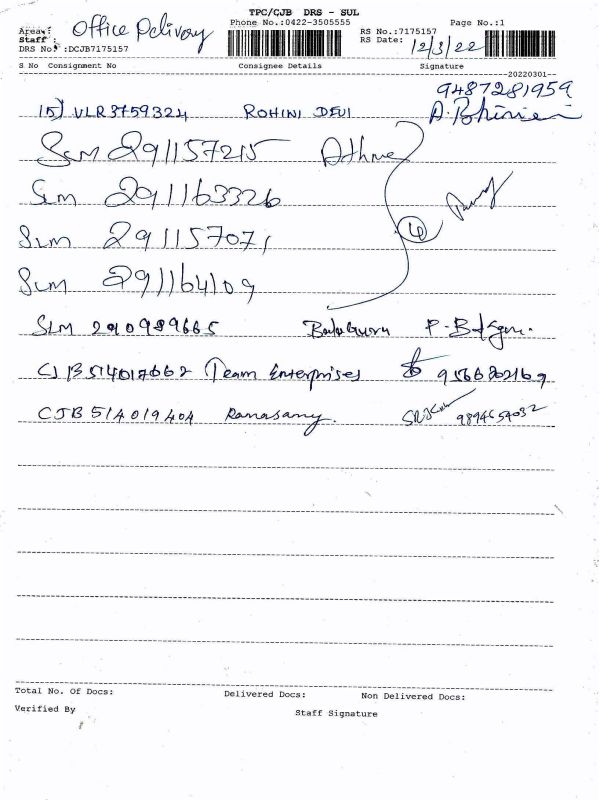 TPC/CJB DRS - SUL
Phone No.:0422-3505555 Page No.:1
Area : Office Delivery RS No.:7175157
Staff : RS Date: 12/3/22
DRS No. :DCJB7175157
S No Consignment No Consignee Details Signature
20220301
9487281959
15) VLR3759324 ROHINI DEVI
SLM 291157215
SLM 291163326
4
SLM 291157071
SLM 291164109
SLM 290989665 Balaguru
CJB514017662 Team Enterprises
CJB514019404 Ramasamy. 9894654032
Total No. Of Docs: Delivered Docs: Non Delivered Docs:
Verified By Staff Signature